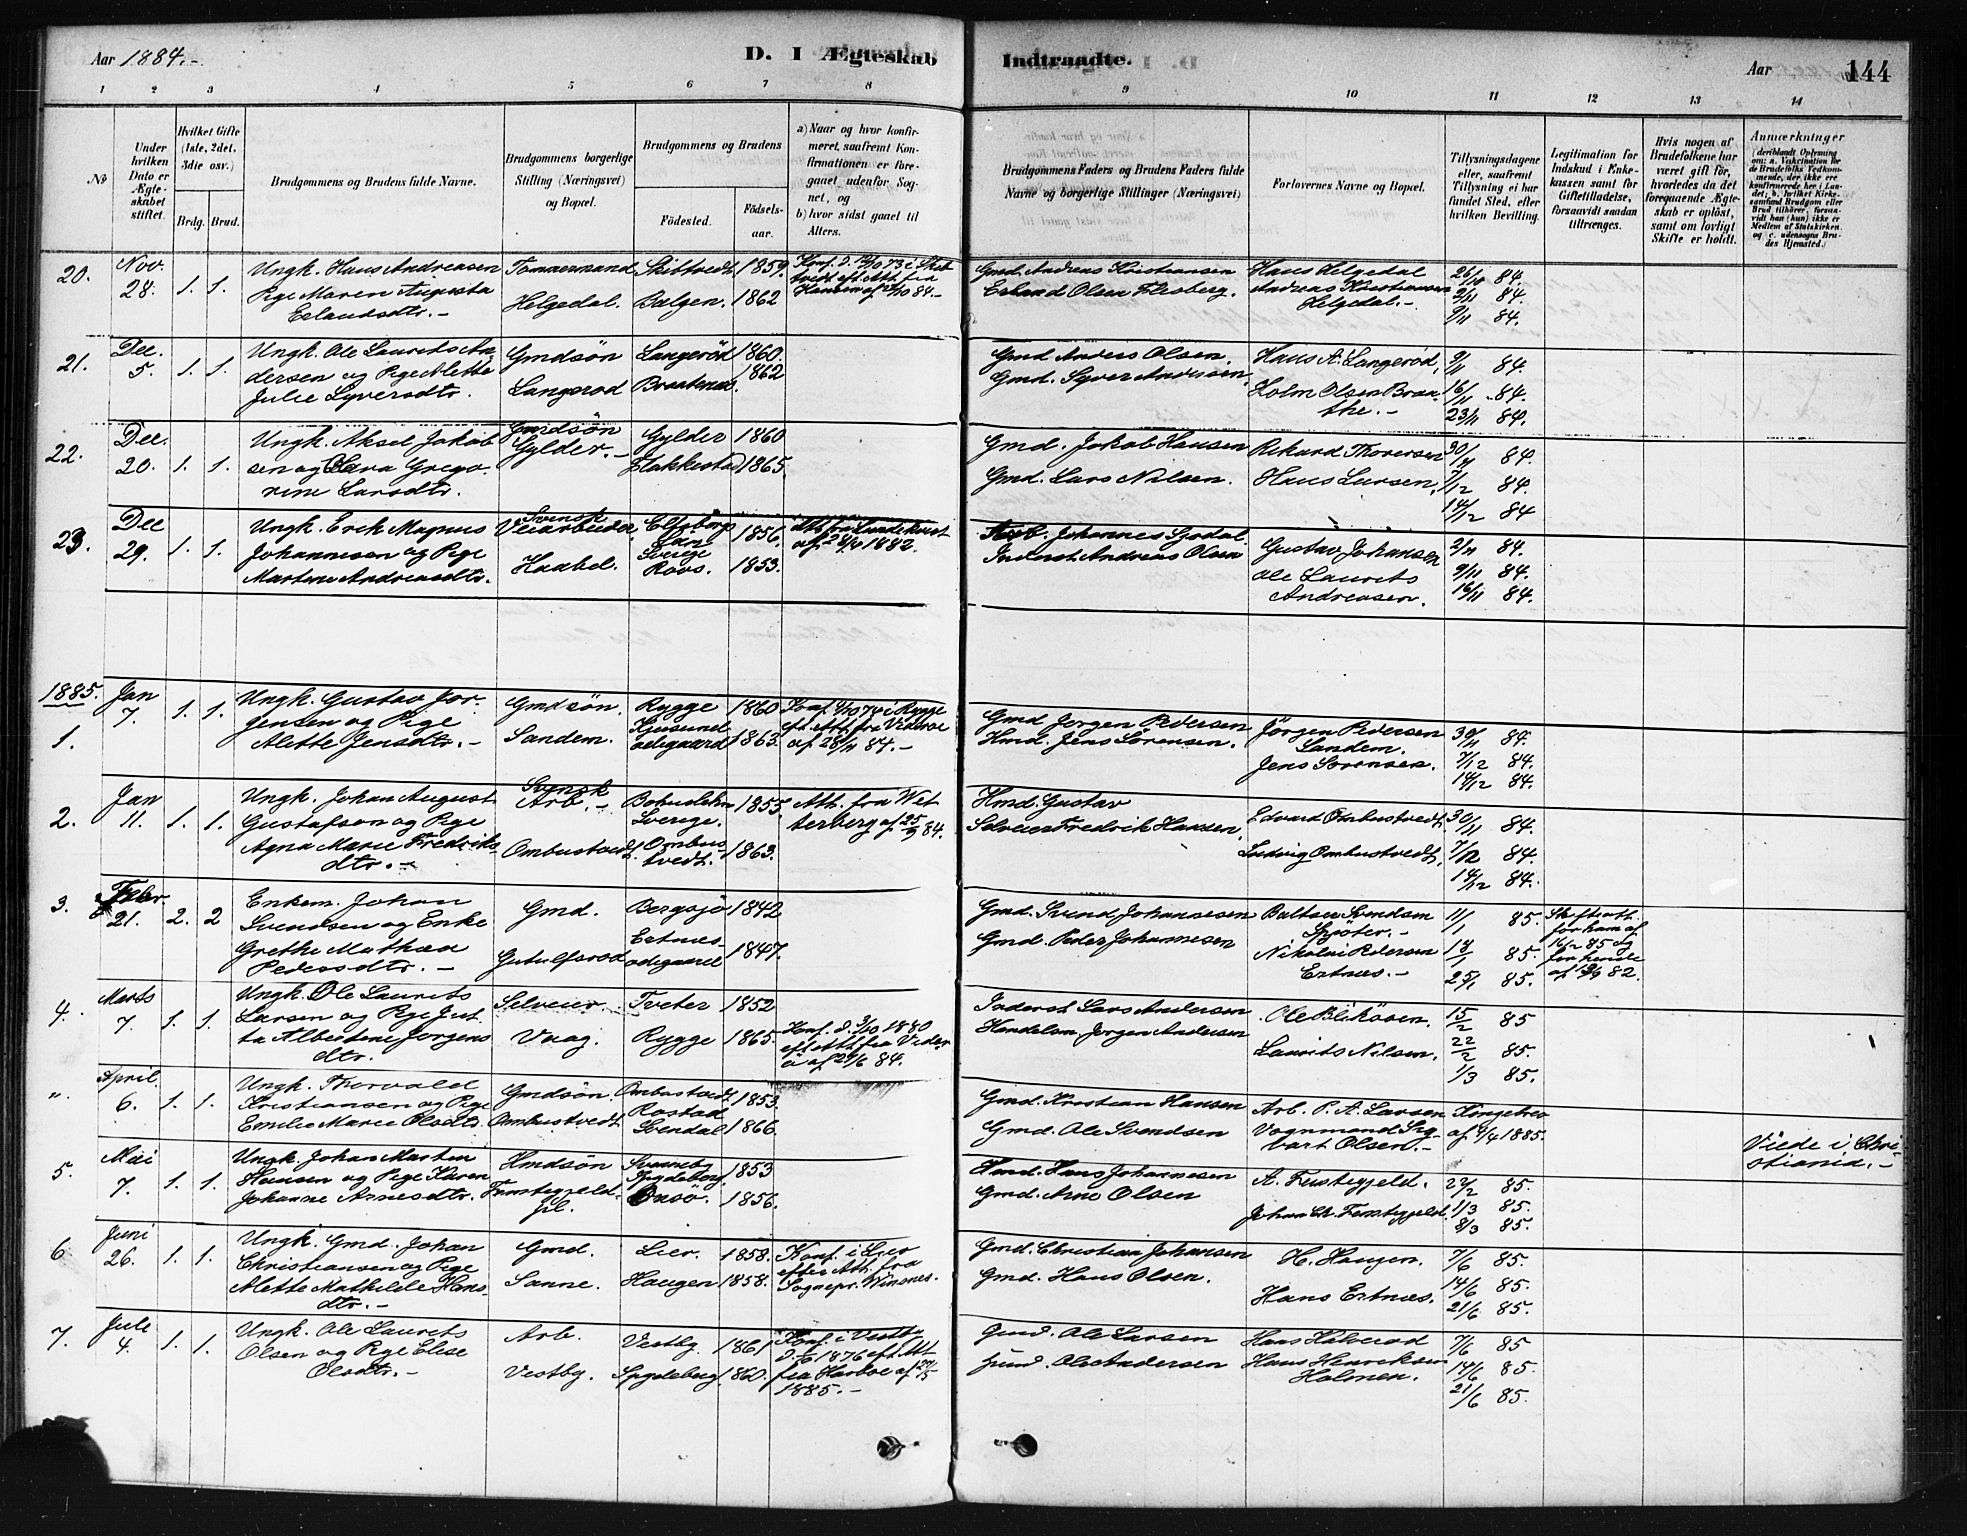 Aar 1884.-
D. I Ægteskab
Indtraadte.
Aar
144
1 2 3 4 5 6 7 8
9 10 11 12 13 14
№
Under hvilken Dato er Ægteskabet stiftet.
Hvilket Gifte (1ste, 2det, 3die osv.)
Brdg. Brud.
Brudgommens og Brudens fulde Navne.
Brudgommens borgerlige Stilling (Næringsvei) og Bopæl.
Brudgommens og Brudens
Födested.
Födselsaar.
a) Naar og hvor konfirmeret, saafremt Konfirmationen er foregaaet udenfor Sognet, og
b) hvor sidst gaaet til Alters.
Brudgommens Faders og Brudens Faders fulde Navne og borgerlige Stillinger (Næringsvei)
Forlovernes Navne og Bopæl.
Tillysningsdagene eller, saafremt Tillysning ei har fundet Sted, efter hvilken Bevilling.
Legitimation for Indskud i Enkekassen samt for Giftetilladelse, forsaavidt saadan tiltrænges.
Hvis nogen af Brudefolkene har været gift för, hvorledes da det foregaaende Ægteskab er oplöst, samt om lovligt Skifte er holdt.
Anmærkninger
20. Nov. 28. 1. 1.
Ungk. Hans Andreasen
Pige Maren Augusta
Erlandsdtr.-
Tømmermand
Helgedal.
Skibtvedt 1859.
Bælgen. 1862
Gmd. Andreas Kristiansen
Erland Olsen Flesberg.
Hans Helgedal
Andreas Kristiansen
Helgedal.-
26/10 84.
2/11 84.
9/11 84.
21. Dec. 5. 1. 1.
Ungk. Ole Laurits An-
dersen og Pige Alette
Julie Syversdtr.
Gmdsön
Langerød
Langeröd 1860.
Braatenes. 1862
Gmd Anders Olsen.
Gmd. Syver Andersen,
Hans A. Langeröd,
Holm Olsen Braa-
the.-
9/11 84.
16/11 84.
23/11 84.
22. Dec. 20. 1. 1.
Ungk. Aksel Jakob
sen og Clara Grego-
rine Larsdtr.
Gmdsön
Gylder.-
Gylder 1860
Flakkestad 1865.
Gmd. Jakob Hansen
Gmd. Lars Nilsen.
Rikard Thoresen
Hans Larsen,
30/11 84.
7/12 84.
14/12 84
23. Dec 29. 1. 1.
Ungk. Erik Magnus
Johannesen og Pige
Martine Andreasdtr.
Svensk
Veiarbeider
Haabøl.
Elfsborgs
Län
Sverige 1856.
Rovs. 1853.
Arb. Johannes Sjødal.
Inderst Andreas Olsen
Gustav Johansen
Ole Laurits
Andreasen.
2/11 84.
9/11 84.
16/11 84.
1885.
1. Jan 7. 1. 1.
Ungk. Gustav Jør-
gensen og Pige
Alette Jensdtr.-
Gmdsön.
Sandem.
Rygge 1860
ødegaard 1863.
Konf. 4/10 74 i Rygge
ef. Att. fra Vidnæs
af 28/11 84.-
Gmd Jørgen Pedersen
Hmd. Jens Sørensen.
Jörgen Pedersen
Sandem.
Jens Sørensen.
30/11 84.
7/12 84.
14/12 84.
2. Jan 11. 1. 1.
Ungk. Johan August
Gustafson og Pige
Agna Marie Fredriks-
dtr.-
Svensk
Arb.-
Ombustvedt.
Bohuslehn
Sverige. 1855.
Ombus-
tvedt. 1863.
Att. fra Wet
terberg af 25/9 84.
Hmd. Gustav
Selveier Fredrik Hansen,
Edvard Ombustvedt.
Ludvig Ombustvedt,
30/11 84.
7/12 84.
14/12 84.
3. Febr 21. 2. 2
Enkem. Johan
Svendsen og Enke
Grethe Mathea
Pedersdtr.-
Gmd.
Gutulfsrod
Bergsjø 1842
Ertnes-
ødegaard 1847.
Gmd. Svend Johannesen
Gmd. Peder Johannesen
Baltser Svendsen
Spjøter.-
Nikolai Pedersen
Ertnæs.-
11/1 85.
18/1 85.
25/1 85.
Skifteatt.
for ham af
16/2 85 og
for hende
4. Marts 7. 1. 1.
Ungk. Ole Laurits
Larsen og Pige Jut
ta Albertine Jørgens
dtr.
Selveier.
Vaag.
Tveter 1852
Rygge 1865.
Konf. d. 3/10 1880
eft. Att. fra Vidne-
s af 29/6 84.
Inderst Lars Andersen
Handelsm. Jørgen Andersen
Ole Blikåsen.
Laurits Nilsen.
15/2 85
22/2 85.
1/3 85.
". April 6. 1. 1.
Ungk. Thorvald
Kristiansen og Pige
Emilie Marie Olsdtr.
Gmdsön.
Ombustvedt
Ombustvedt 1853.
Rostad
Svendal 1866.
Gmd. Kristian Hansen
Gmd. Ole Svendsen
Arb. P. A. Larsen
Vognmand Sig-
vart Olsen.-
Kongebrev
af 4/4 1885.
Viede i Chri-
stiania.-
5. Mai 7. 1. 1.
Ungk. Johan Martin
Hansen og Pige Karen
Johanne Arnesdtr.
Hmdsön
Spydeberg 1853
Onsö. 1856.
Hmd. Hans Johannesen
Gmd. Arne Olsen
22/2 85.
1/3 85.
8/3 85.
6 Juni 26. 1. 1.
Ungk. Gmd. Johan
Christiansen og Pige
Alette Mathilde Hans-
dtr.-
Gmd.
Sanne.
Lier. 1858.
Haugen 1858.
Konf. i Lier
efter Att. fra
Sognepr. Winsnes.
Gmd. Christian Johansen
Gmd. Hans Olsen.
H. Haugen.
Hans Ertnæs.
7/6 85.
14/6 85.
21/6 85.
7. Juli 4. 1. 1.
Ungk. Ole Laurits
Olsen og Pige Elise
Olsdtr.-
Arb.
Vestby.
Vestby. 1861
Spydeberg. 1860.
Konf. i Vestby
1885.-
Gmd. Ole Larsen
Gmd. Ole Andersen
Hans Halvorød
Hans Henriksen
Holmen.
7/6 85
14/6 85.
21/6 85.